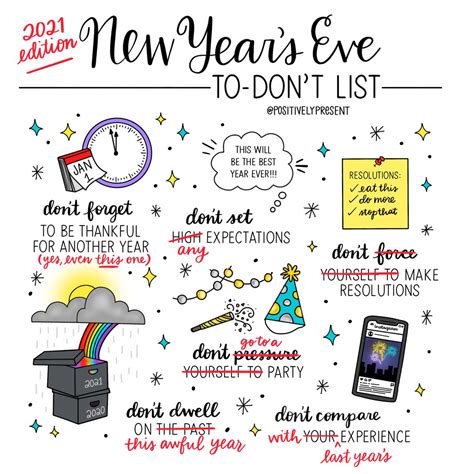 2021
edition
New Year's Eve
TO-DON'T LIST
@POSITIVELYPRESENT
JAN
1
THIS WILL
BE THE BEST
YEAR EVER!!!
RESOLUTIONS:
✓ eat this
✓ do more
✓ stop that
don't forget
TO BE THANKFUL
FOR ANOTHER YEAR
(yes, even this one)
don't set
HIGH EXPECTATIONS
any
don't force
YOURSELF TO MAKE
RESOLUTIONS
2021
2020
go to a
don't pressure
YOURSELF TO PARTY
Instagram
don't dwell
ON THE PAST
this awful year
don't compare
with YOUR EXPERIENCE
last year's